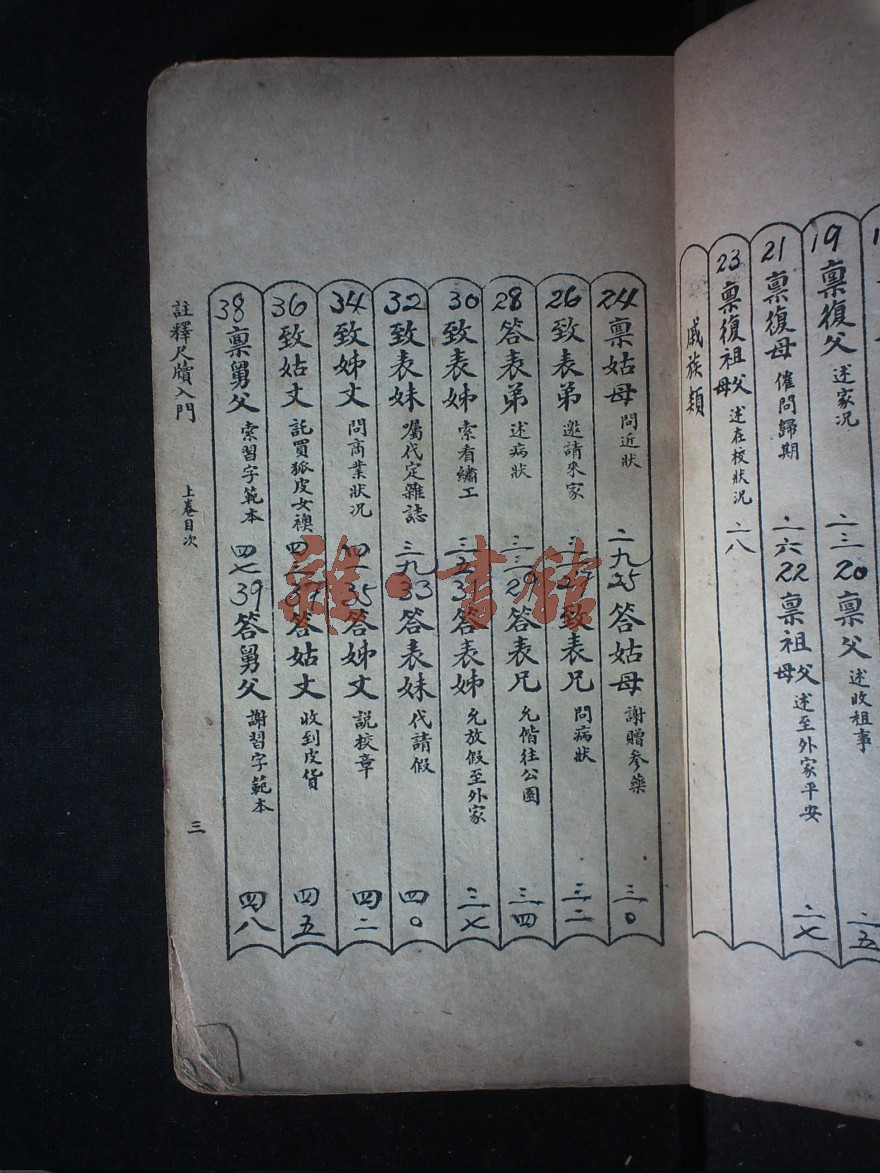 19 稟復父 述家况 二三 20 稟父 述收租事 二五
21 稟復母 催問歸期 二六 22 稟祖父母 述至外家平安 二七
23 稟復祖父母 述在校狀况 二八
戚族類
24 稟姑母 問近狀 二九 25 答姑母 謝贈參藥 三〇
26 致表弟 邀請來家 27 致表兄 問病狀 三二
28 答表弟 述病狀 29 答表兄 允偕往公園 三四
30 致表姊 索看繡工 三五 31 答表姊 允放假至外家 三七
32 致表妹 囑代定雜誌 三九 33 答表妹 代請假 四〇
34 致姊丈 問商業狀况 35 答姊丈 説校章 四二
36 致姑丈 託買狐皮女襖 37 答姑丈 收到皮貨 四五
38 稟舅父 索習字範本 四七 39 答舅父 謝習字範本 四八
註釋尺牘入門 上卷目次 三
雜·書館